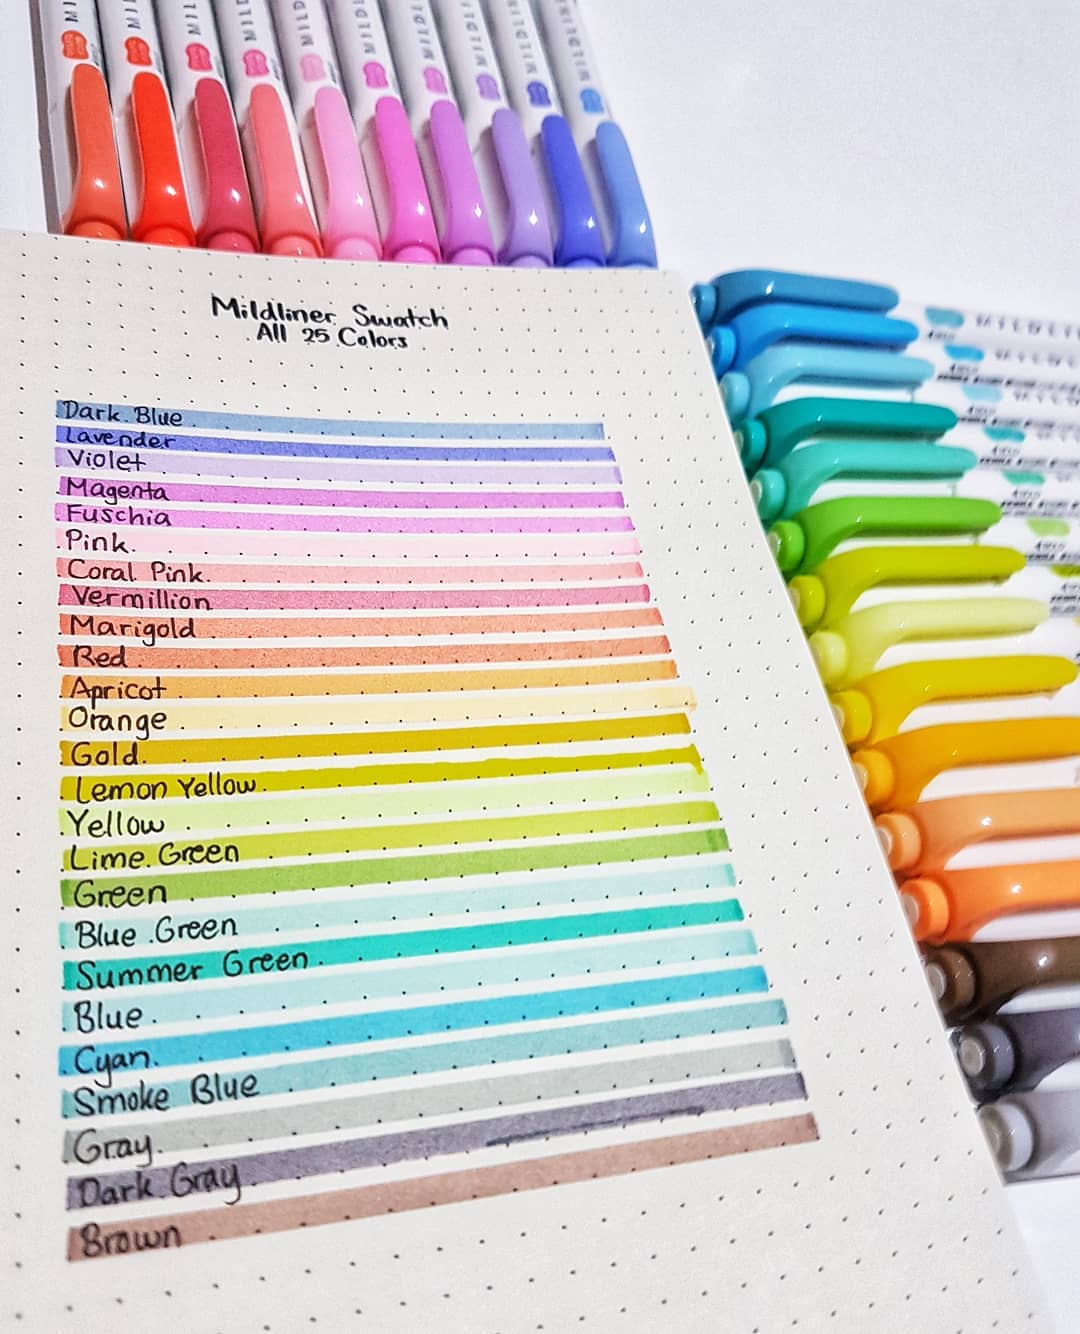 Mildliner Swatch
All 25 Colors
Dark Blue
Lavender
Violet
Magenta
Fuschia
Pink
Coral Pink
Vermillion
Marigold
Red
Apricot
Orange
Gold
Lemon Yellow
Yellow
Lime Green
Green
Blue Green
Summer Green
Blue
Cyan
Smoke Blue
Gray
Dark Gray
Brown